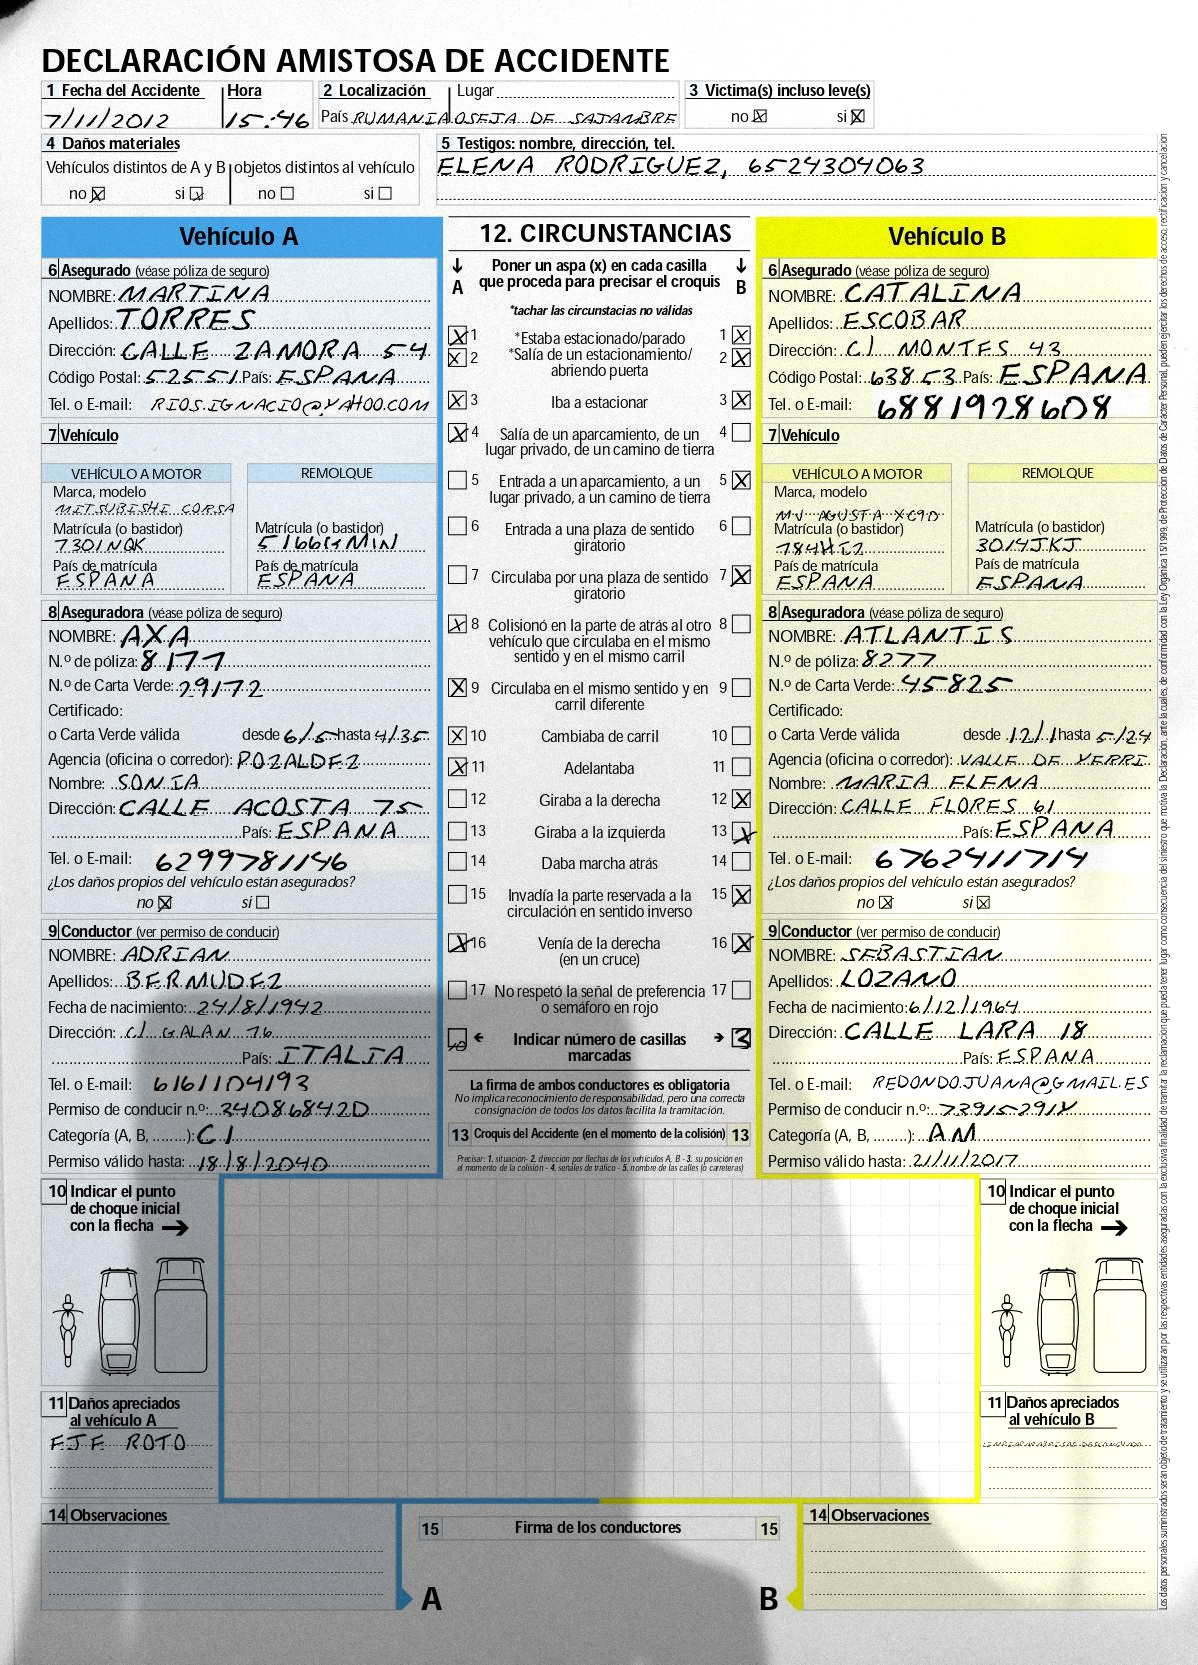 DECLARACIÓN AMISTOSA DE ACCIDENTE
1 Fecha del Accidente Hora 2 Localización Lugar 3 Victima(s) incluso leve(s)
7/11/2012 15:46 País RUMANIA OSEJA DE SAJAMBRE no si
4 Daños materiales 5 Testigos: nombre, dirección, tel.
Vehículos distintos de A y B objetos distintos al vehículo ELENA RODRIGUEZ, 6524304063
no si no si
Vehículo A
6 Asegurado (véase póliza de seguro)
NOMBRE: MARTINA
Apellidos: TORRES
Dirección: CALLE ZAMORA 54
Código Postal: 52551 País: ESPANA
Tel. o E-mail: RIOS.IGNACIO@YAHOO.COM
7 Vehículo
VEHÍCULO A MOTOR REMOLQUE
Marca, modelo
MITSUBISHI CORSA
Matrícula (o bastidor) Matrícula (o bastidor)
7301NQK 5166GMIN
País de matrícula País de matrícula
ESPANA ESPANA
8 Aseguradora (véase póliza de seguro)
NOMBRE: AXA
N.º de póliza: 8177
N.º de Carta Verde: 29172
Certificado:
o Carta Verde válida desde 6/5 hasta 4/35
Agencia (oficina o corredor): POZALDEZ
Nombre: SONIA
Dirección: CALLE ACOSTA 75
País: ESPANA
Tel. o E-mail: 6299781146
¿Los daños propios del vehículo están asegurados?
no si
9 Conductor (ver permiso de conducir)
NOMBRE: ADRIAN
Apellidos: BERMUDEZ
Fecha de nacimiento: 24/8/1942
Dirección: C/ GALAN 76
País: ITALIA
Tel. o E-mail: 6161104193
Permiso de conducir n.º: 34086842D
Categoría (A, B, ........): C1
Permiso válido hasta: 18/8/2040
12. CIRCUNSTANCIAS
A Poner un aspa (x) en cada casilla que proceda para precisar el croquis B
*tachar las circunstacias no válidas
1 *Estaba estacionado/parado 1
2 *Salía de un estacionamiento/ 2
abriendo puerta
3 Iba a estacionar 3
4 Salía de un aparcamiento, de un 4
lugar privado, de un camino de tierra
5 Entrada a un aparcamiento, a un 5
lugar privado, a un camino de tierra
6 Entrada a una plaza de sentido 6
giratorio
7 Circulaba por una plaza de sentido 7
giratorio
8 Colisionó en la parte de atrás al otro 8
vehículo que circulaba en el mismo
sentido y en el mismo carril
9 Circulaba en el mismo sentido y en 9
carril diferente
10 Cambiaba de carril 10
11 Adelantaba 11
12 Giraba a la derecha 12
13 Giraba a la izquierda 13
14 Daba marcha atrás 14
15 Invadía la parte reservada a la 15
circulación en sentido inverso
16 Venía de la derecha 16
(en un cruce)
17 No respetó la señal de preferencia 17
o semáforo en rojo
10 Indicar número de casillas 3
marcadas
La firma de ambos conductores es obligatoria
No implica reconocimiento de responsabilidad, pero una correcta
consignación de todos los datos facilita la tramitación.
13 Croquis del Accidente (en el momento de la colisión) 13
Precisar: 1. situación- 2. dirección por flechas de los vehículos A, B - 3. su posición en
el momento de la colisión - 4. señales de tráfico - 5. nombre de las calles (ó carreteras)
Vehículo B
6 Asegurado (véase póliza de seguro)
NOMBRE: CATALINA
Apellidos: ESCOBAR
Dirección: C/ MONTES 43
Código Postal: 63853 País: ESPANA
Tel. o E-mail: 6881928608
7 Vehículo
VEHÍCULO A MOTOR REMOLQUE
Marca, modelo
MV AGUSTA XG9D
Matrícula (o bastidor) Matrícula (o bastidor)
784HIZ 3014JKJ
País de matrícula País de matrícula
ESPANA ESPANA
8 Aseguradora (véase póliza de seguro)
NOMBRE: ATLANTIS
N.º de póliza: 8277
N.º de Carta Verde: 45825
Certificado:
o Carta Verde válida desde 12/1 hasta 5/24
Agencia (oficina o corredor): VALLE DE YERRI
Nombre: MARIA ELENA
Dirección: CALLE FLORES 61
País: ESPANA
Tel. o E-mail: 6762411714
¿Los daños propios del vehículo están asegurados?
no si
9 Conductor (ver permiso de conducir)
NOMBRE: SEBASTIAN
Apellidos: LOZANO
Fecha de nacimiento: 6/12/1964
Dirección: CALLE LARA 18
País: ESPANA
Tel. o E-mail: REDONDOJUANA@GMAIL.ES
Permiso de conducir n.º: 73915291X
Categoría (A, B, ........): AM
Permiso válido hasta: 21/11/2017
10 Indicar el punto
de choque inicial
con la flecha
11 Daños apreciados
al vehículo A
EJE ROTO
10 Indicar el punto
de choque inicial
con la flecha
11 Daños apreciados
al vehículo B
14 Observaciones
15 Firma de los conductores 15
A B
14 Observaciones
Los datos personales suministrados serán objeto de tratamiento y se utilizaran por las respectivas entidades aseguradas con la exclusiva finalidad de tramitar la reclamación que pueda tener lugar como consecuencia del siniestro que motiva la Declaración, ante la cuales, de conformidad con la Ley Orgánica 15/1999, de Protección de Datos de Carácter Personal, pueden ejercitar los derechos de acceso, rectificación y cancelación